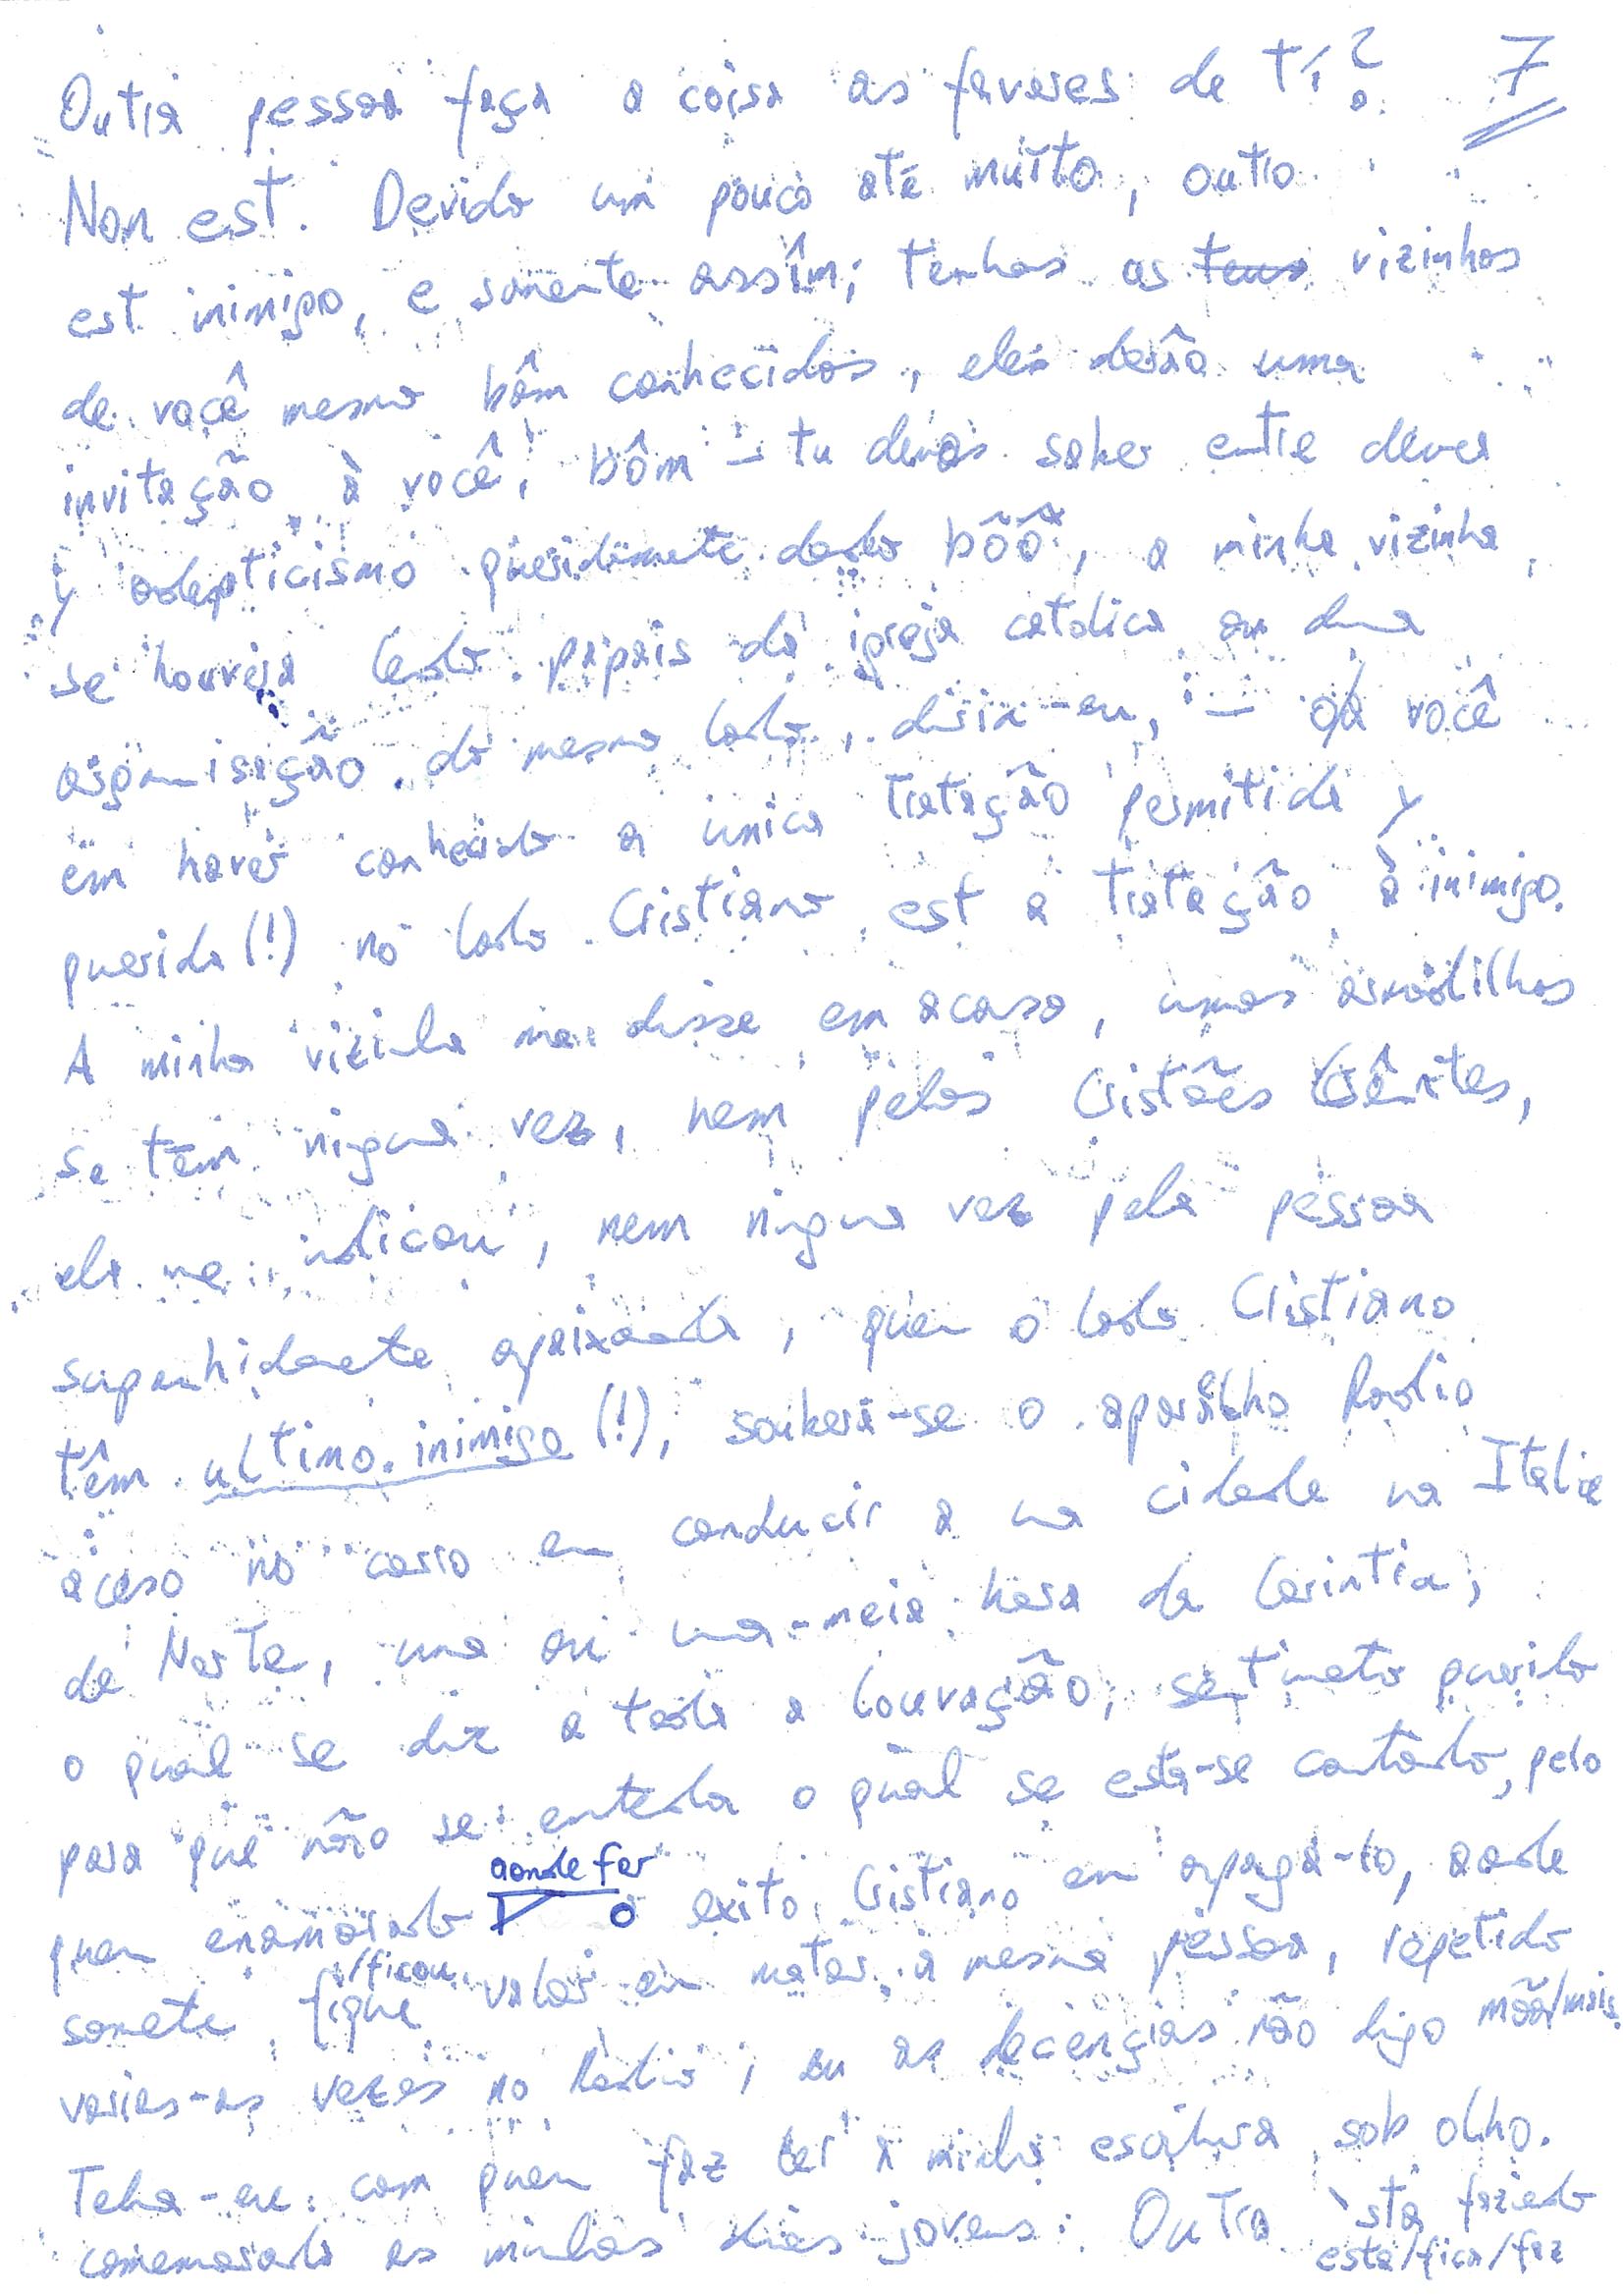 Outra pessoa faça a coisa as favores de ti? 7
Non est. Devido um pouco até muito, outro
est inimigo, e somente assîm; tenhas as teus vizinhos
de você mesmo bôm conhecidos, eles derão uma
invitação à você, bôm – tu devas saber entre dever
y adepticismo queridamente dado bôõ, a minha vizinha,
se houvera lendo papais da igreja catolica ou duma
organisição do mesmo lado, diria-eu, – ou você
em haver conhecido a unica tratação permitida y
querida (!) no lado Cristiano est a tratação à inimigo.
A minha vizinha me disse em acaso, umas armadilhas
se têm ninguna vez, nem pelos Cristães Crêntes,
ela me indicou, nem ninguna vez pela pessoa
supanhidamente apaixonada, quen o lado Cristiano
têm ultimo inimigo (!), soubera-se o aparelho Radio
aceso no carro en conducir a una cidade na Italia
de Norte, una ou una-meia hora da Carintia,
o qual se diz a toda a louvação, sentimento querido
para que não se entenda o qual se esta-se contando, pelo
quen enamorado aonde for o exito Cristiano en apagá-lo, aonde
somente fique/ficou valor en matar a mesma pessoa, repetido
varias-as vezes no Radio, eu as decenças não digo mõõ/mais.
Tenha-eu com quen faz ler a minha escritura sob olho.
comemorando as minhas dias jovens. Outra ista faziendo
esta/fica/faz